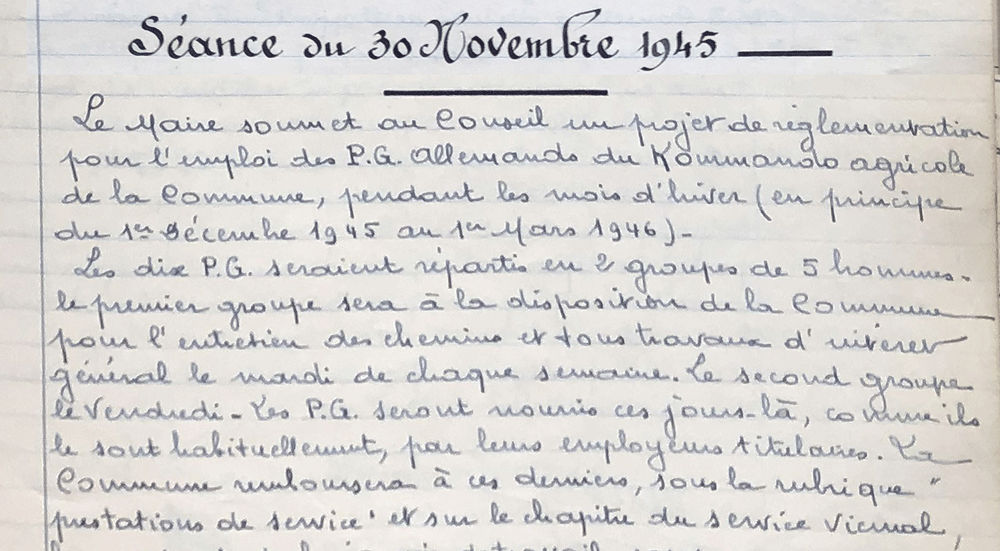 Séance du 30 Novembre 1945
Le Maire soumet au Conseil un projet de réglementation
pour l'emploi des P.G. Allemands du Kommando agricole
de la Commune, pendant les mois d'hiver (en principe
du 1er Décembre 1945 au 1er Mars 1946)-
Les dix P.G. seraient répartis en 2 groupes de 5 hommes.
le premier groupe sera à la disposition de la Commune
pour l'entretien des chemins et tous travaux d'intérêt
général le mardi de chaque semaine. Le second groupe
le Vendredi - Les P.G. seront nourris ces jours-là, comme ils
le sont habituellement, par leurs employeurs titulaires. La
Commune remboursera à ces derniers, sous la rubrique "
prestations de service" et sur le chapitre du service vicinal,